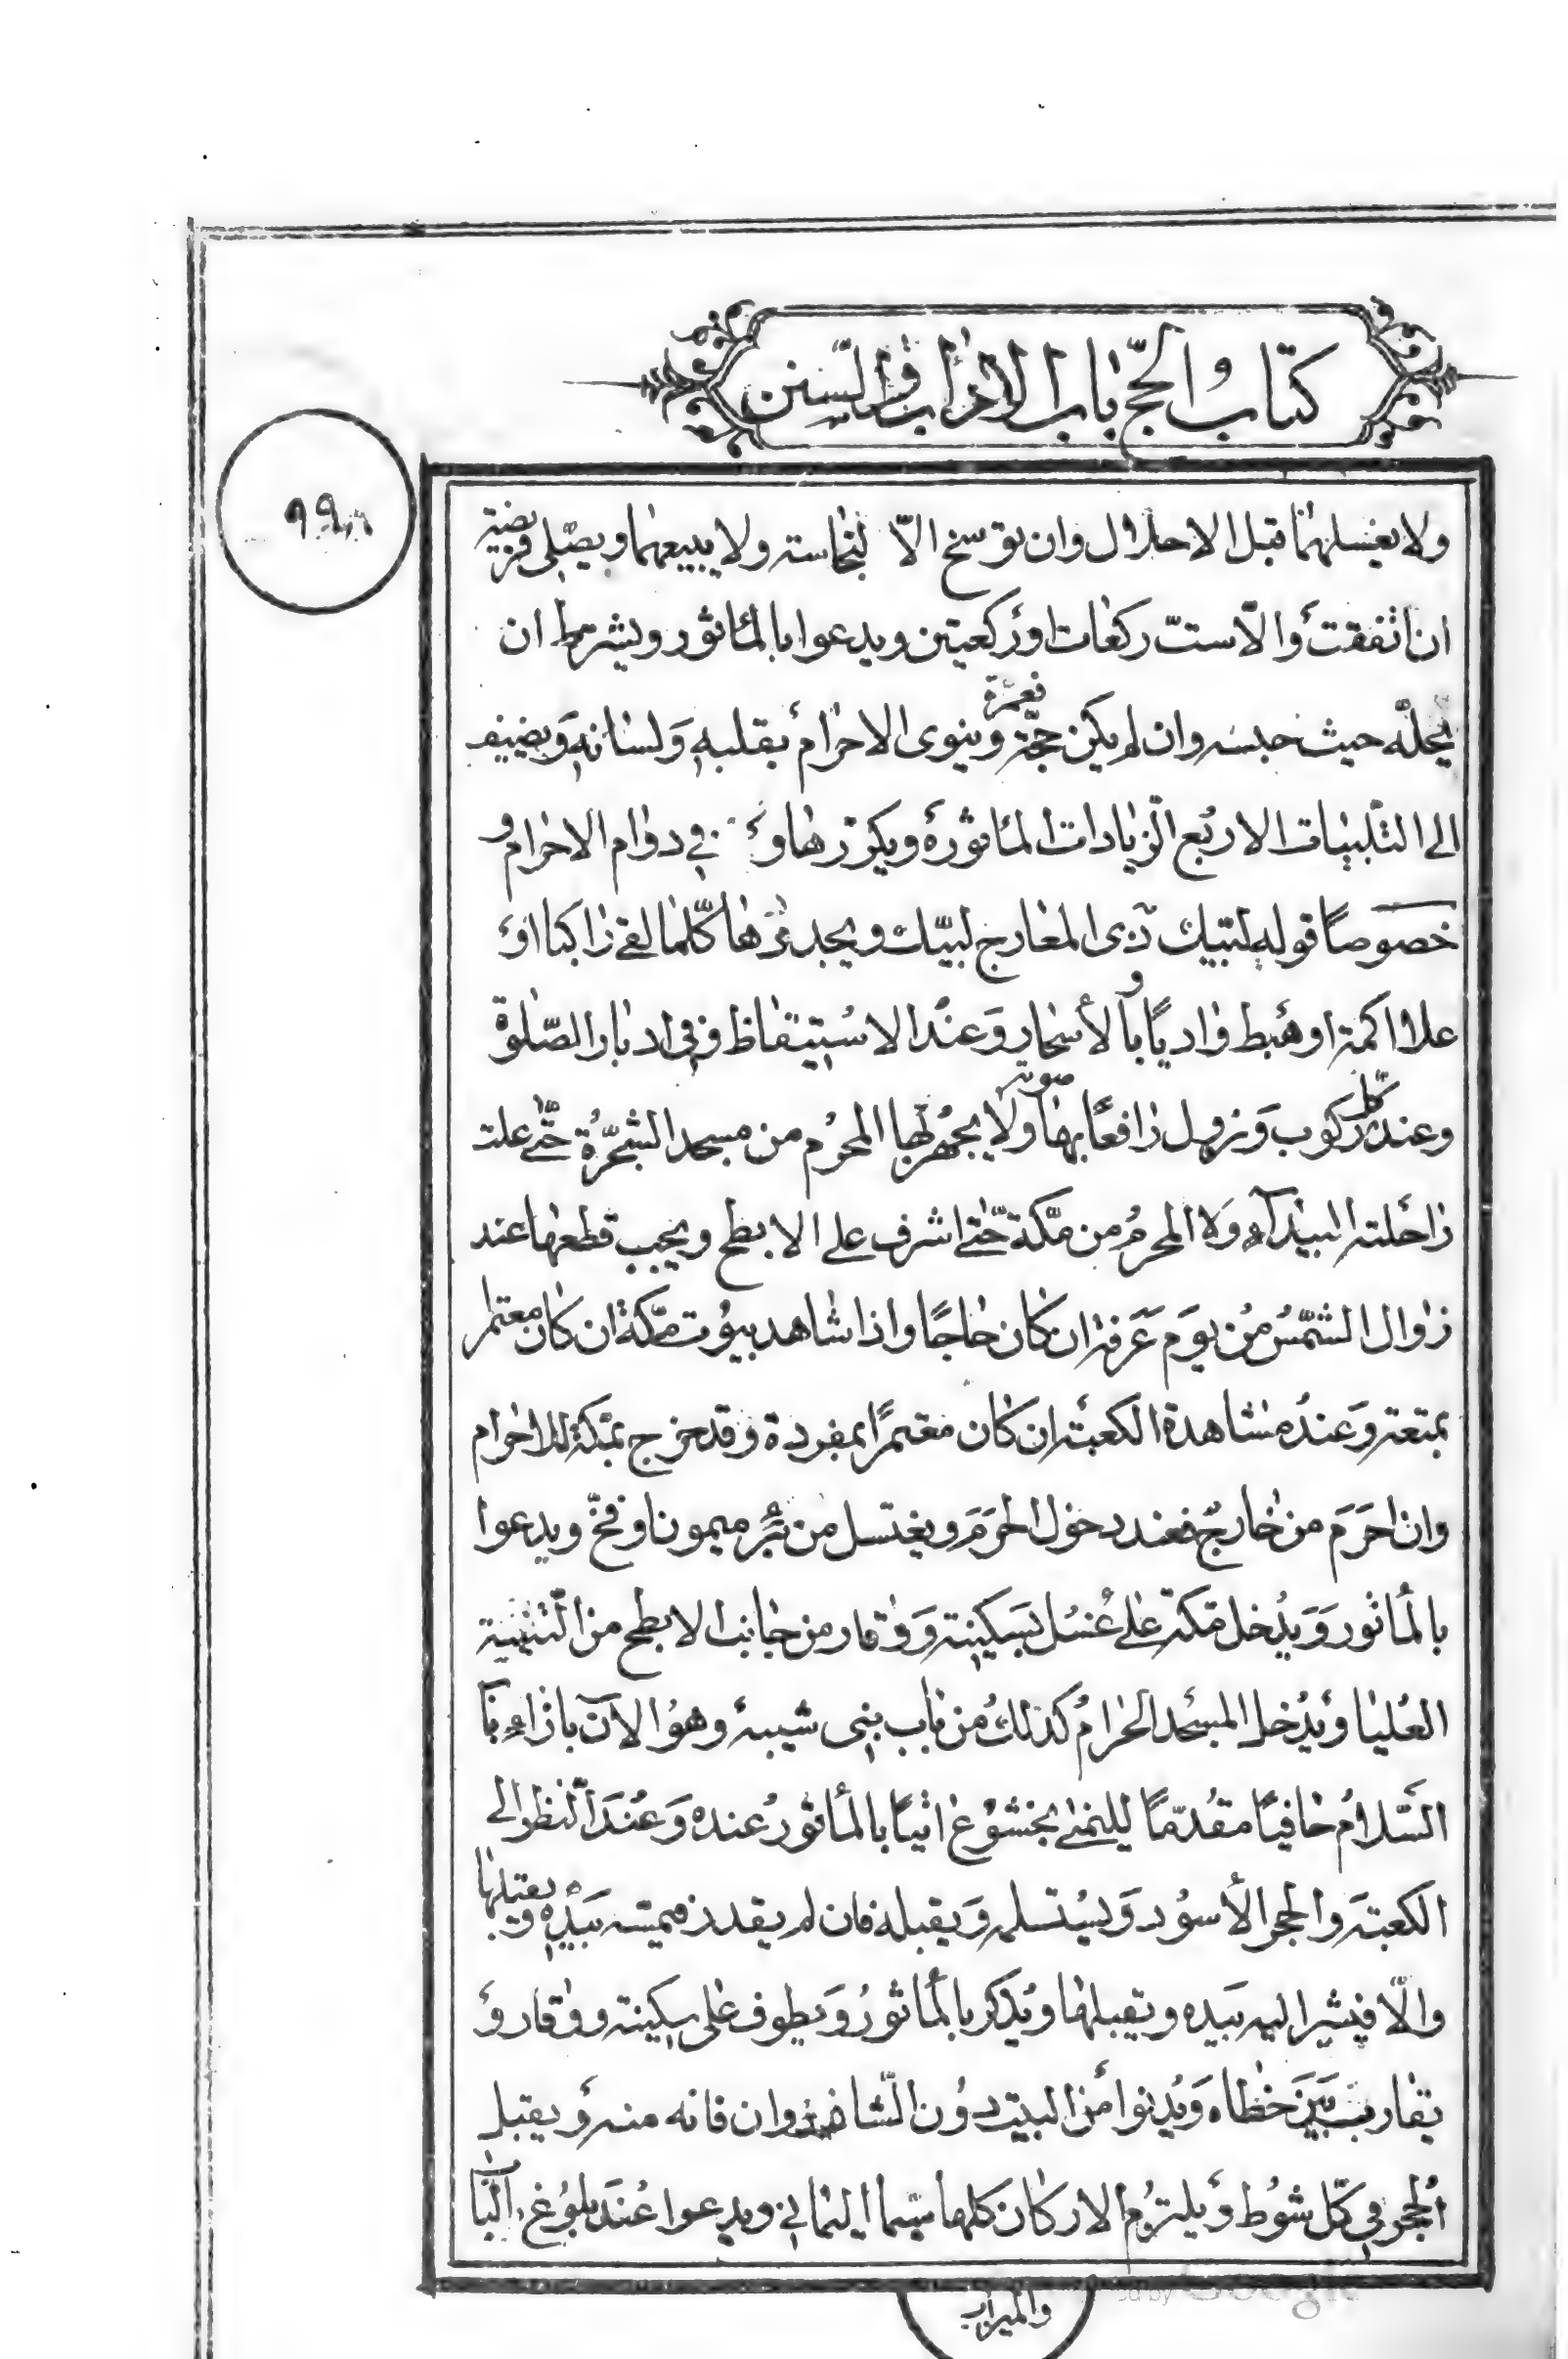 كتاب والحجّ باب الاداب والسّنن
٩٩
ولا يغسلهما قبل الاحلال وان توسخ الّا لنجاسته ولا يبيعهما ويصلى فريضة
ان اتفقت والّا ستّ ركعات او ركعتين ويدعوا بالمأثور ويشرط ان
يحلّه حيث حبسه وان لم يكن حجّة فعمرة وينوى الاحرام بقلبه ولسانه ويضيف
الى التّلبيات الاربع الزيادات المأثورة ويكررها و في دوام الاحرام و
خصوصا قوله لبّيك ذى المعارج لبّيك ويجددها كلّما لقى راكبا او
علا اكمة او هبط واديا وبالأسحار وعند الاستيقاظ وفي ادبار الصّلوة
وعند كلّ ركوب ونزول رافعا بها صوته ولا يجهر بها المحرم من مسجد الشجرة حتّى علت
راحلته البيداء ولا المحرم من مكّة حتّى اشرف على الابطح ويجب قطعها عند
زوال الشمس من يوم عرفة ان كان حاجا واذا شاهد بيوت مكّة ان كان معتمرا
بمتعة وعند مشاهدة الكعبة ان كان معتمرًا بمفردة وقد خرج بمكّة للاحرام
وان احرم من خارج فعند دخول الحرم ويغتسل من بئر ميمون او فخّ ويدعوا
بالمأثور ويدخل مكّة على غسل بسكينة ووقار من جانب الابطح من الثنيية
العليا ويدخل المسجد الحرام كذلك من باب بنى شيبة وهو الآن بازاء با
السّلام حافيا مقدّما لليمنى بخشوع اتيا بالمأثور عنده وعند النظر الى
الكعبة والحجر الأسود ويستلمه ويقبله فان لم يقدر فيمسّه بيده ويقبلها
والّا فيشير اليه بيده ويقبلها ويذكر بالمأثور ويطوف على سكينة ووقار و
يقارب بين خطاه ويدنوا من البيت دون الشاذر وان فانه منه ويقبل
الحجر في كلّ شوط ويلتزم الاركان كلها سيما اليمانى ويدعوا عند بلوغ البا
والميزاب